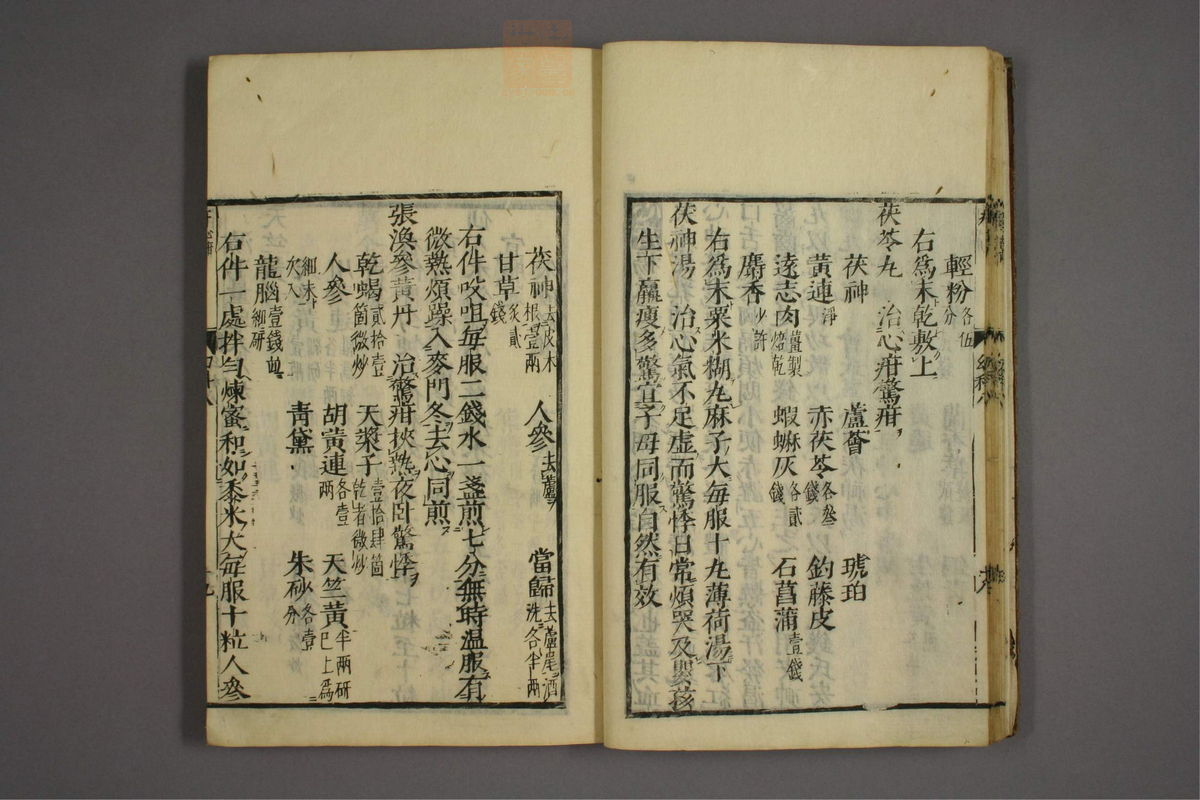 輕粉各伍分
右爲末乾敷上
茯苓丸 治心疳驚疳
茯神 蘆薈 琥珀
黄連淨 赤茯苓各叁錢 釣藤皮
遠志肉薑製焙乾 蝦蟆灰各貳錢 石菖蒲壹錢
麝香少許
右爲末粟米糊丸麻子大每服十丸薄荷湯下
茯神湯 治心氣不足虚而驚悸日常煩哭及嬰孩
生下羸瘦多驚宜子母同服自然有效
茯神去皮木根壹兩 人參去蘆 當歸去蘆尾酒洗各半兩
甘草炙貳錢
右件㕮咀每服二錢水一盞煎七分無時温服有
微熱煩躁入麥門冬去心同煎
張渙參黄丹 治驚疳挾熱夜卧驚悸
乾蝎貳拾壹箇微炒 天漿子壹拾肆箇乾者微炒
人參 胡黄連各壹兩 天竺黄半兩研巳上爲
細末次入 青黛 朱砂各壹分
龍腦壹錢細研
右件一處拌勻煉蜜和如黍米大每服十粒人參